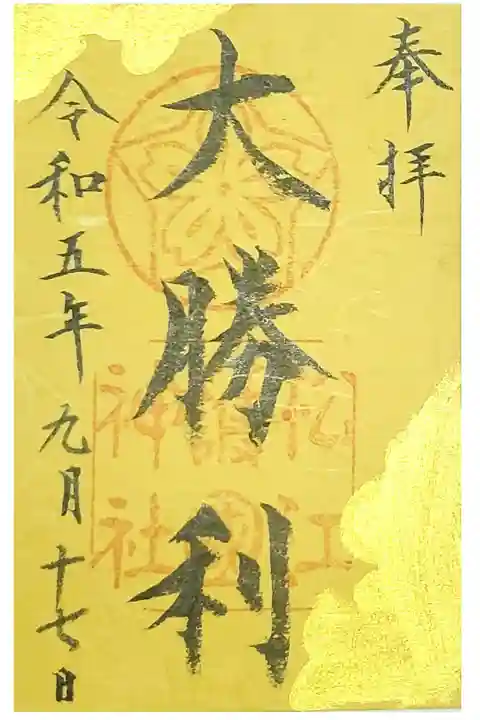 奉拝
大勝利
松江護國神社
令和五年九月十七日